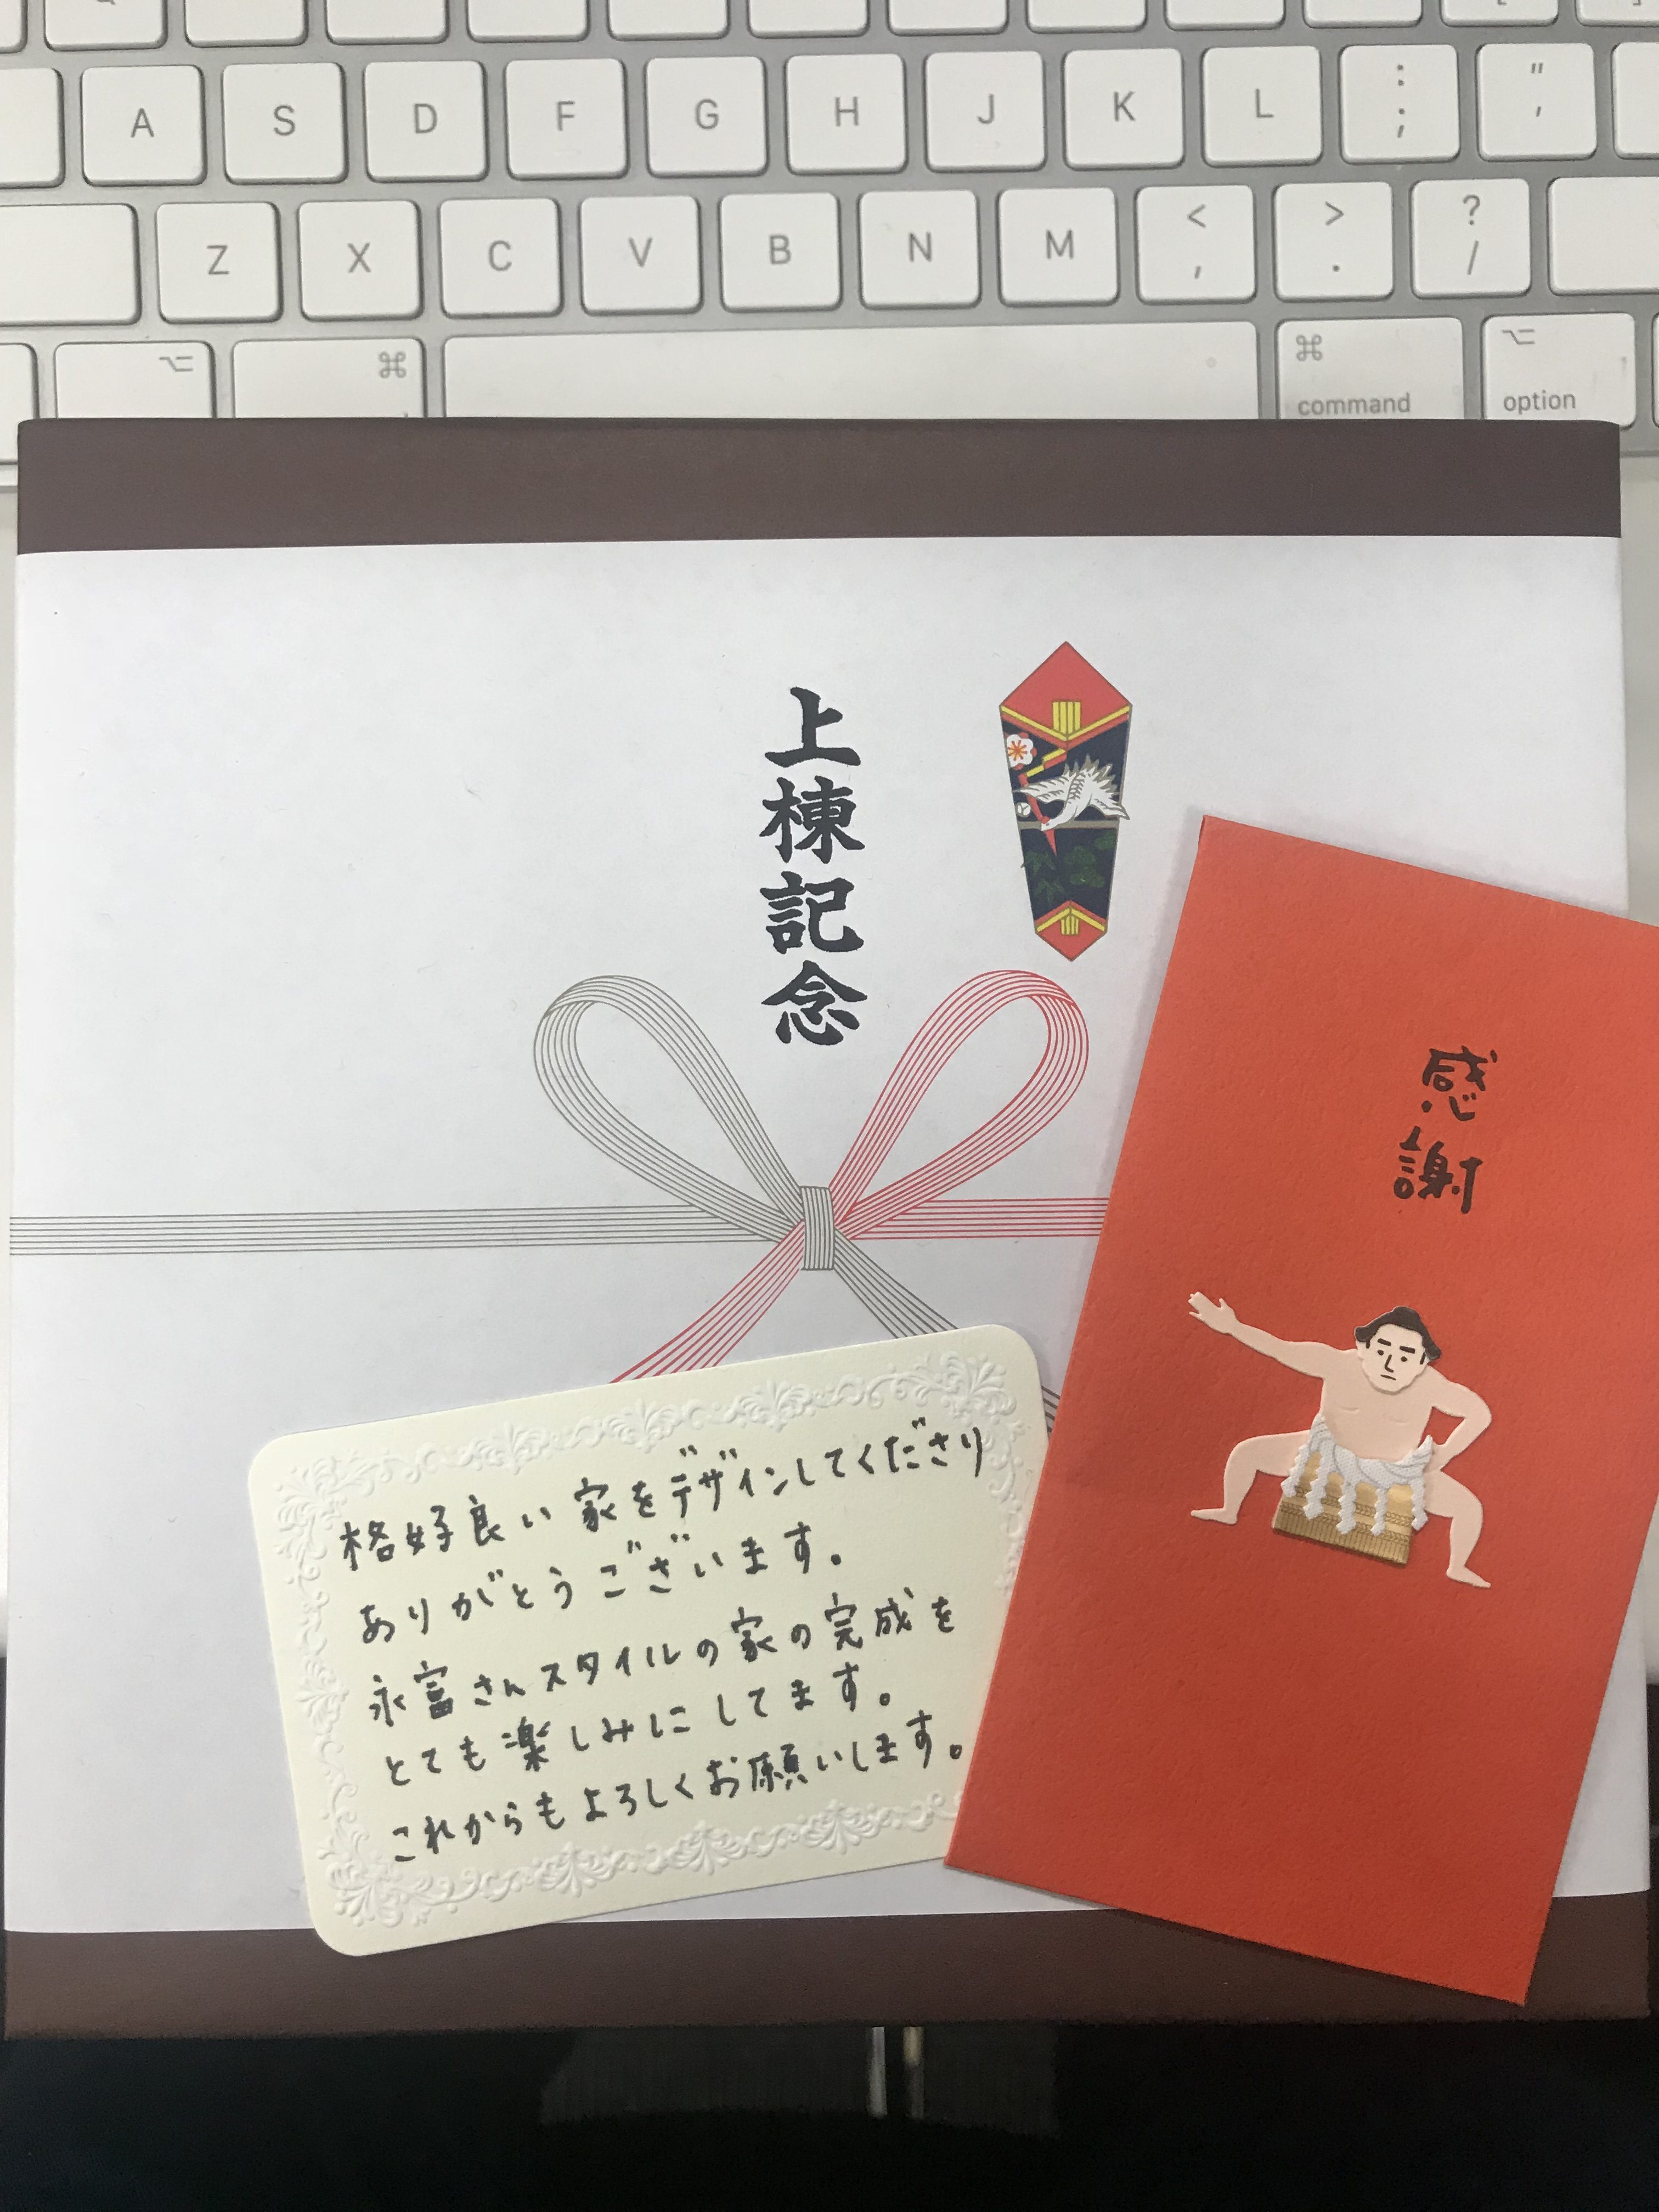 A S D F G H J K L : ; " '
Z X C V B N M < , > . ? /
⌥ ⌘ ⌘ ⌥
command option
上棟記念
感謝
格好良い家をデザインしてくださり
ありがとうございます。
永富さんスタイルの家の完成を
とても楽しみにしてます。
これからもよろしくお願いします。